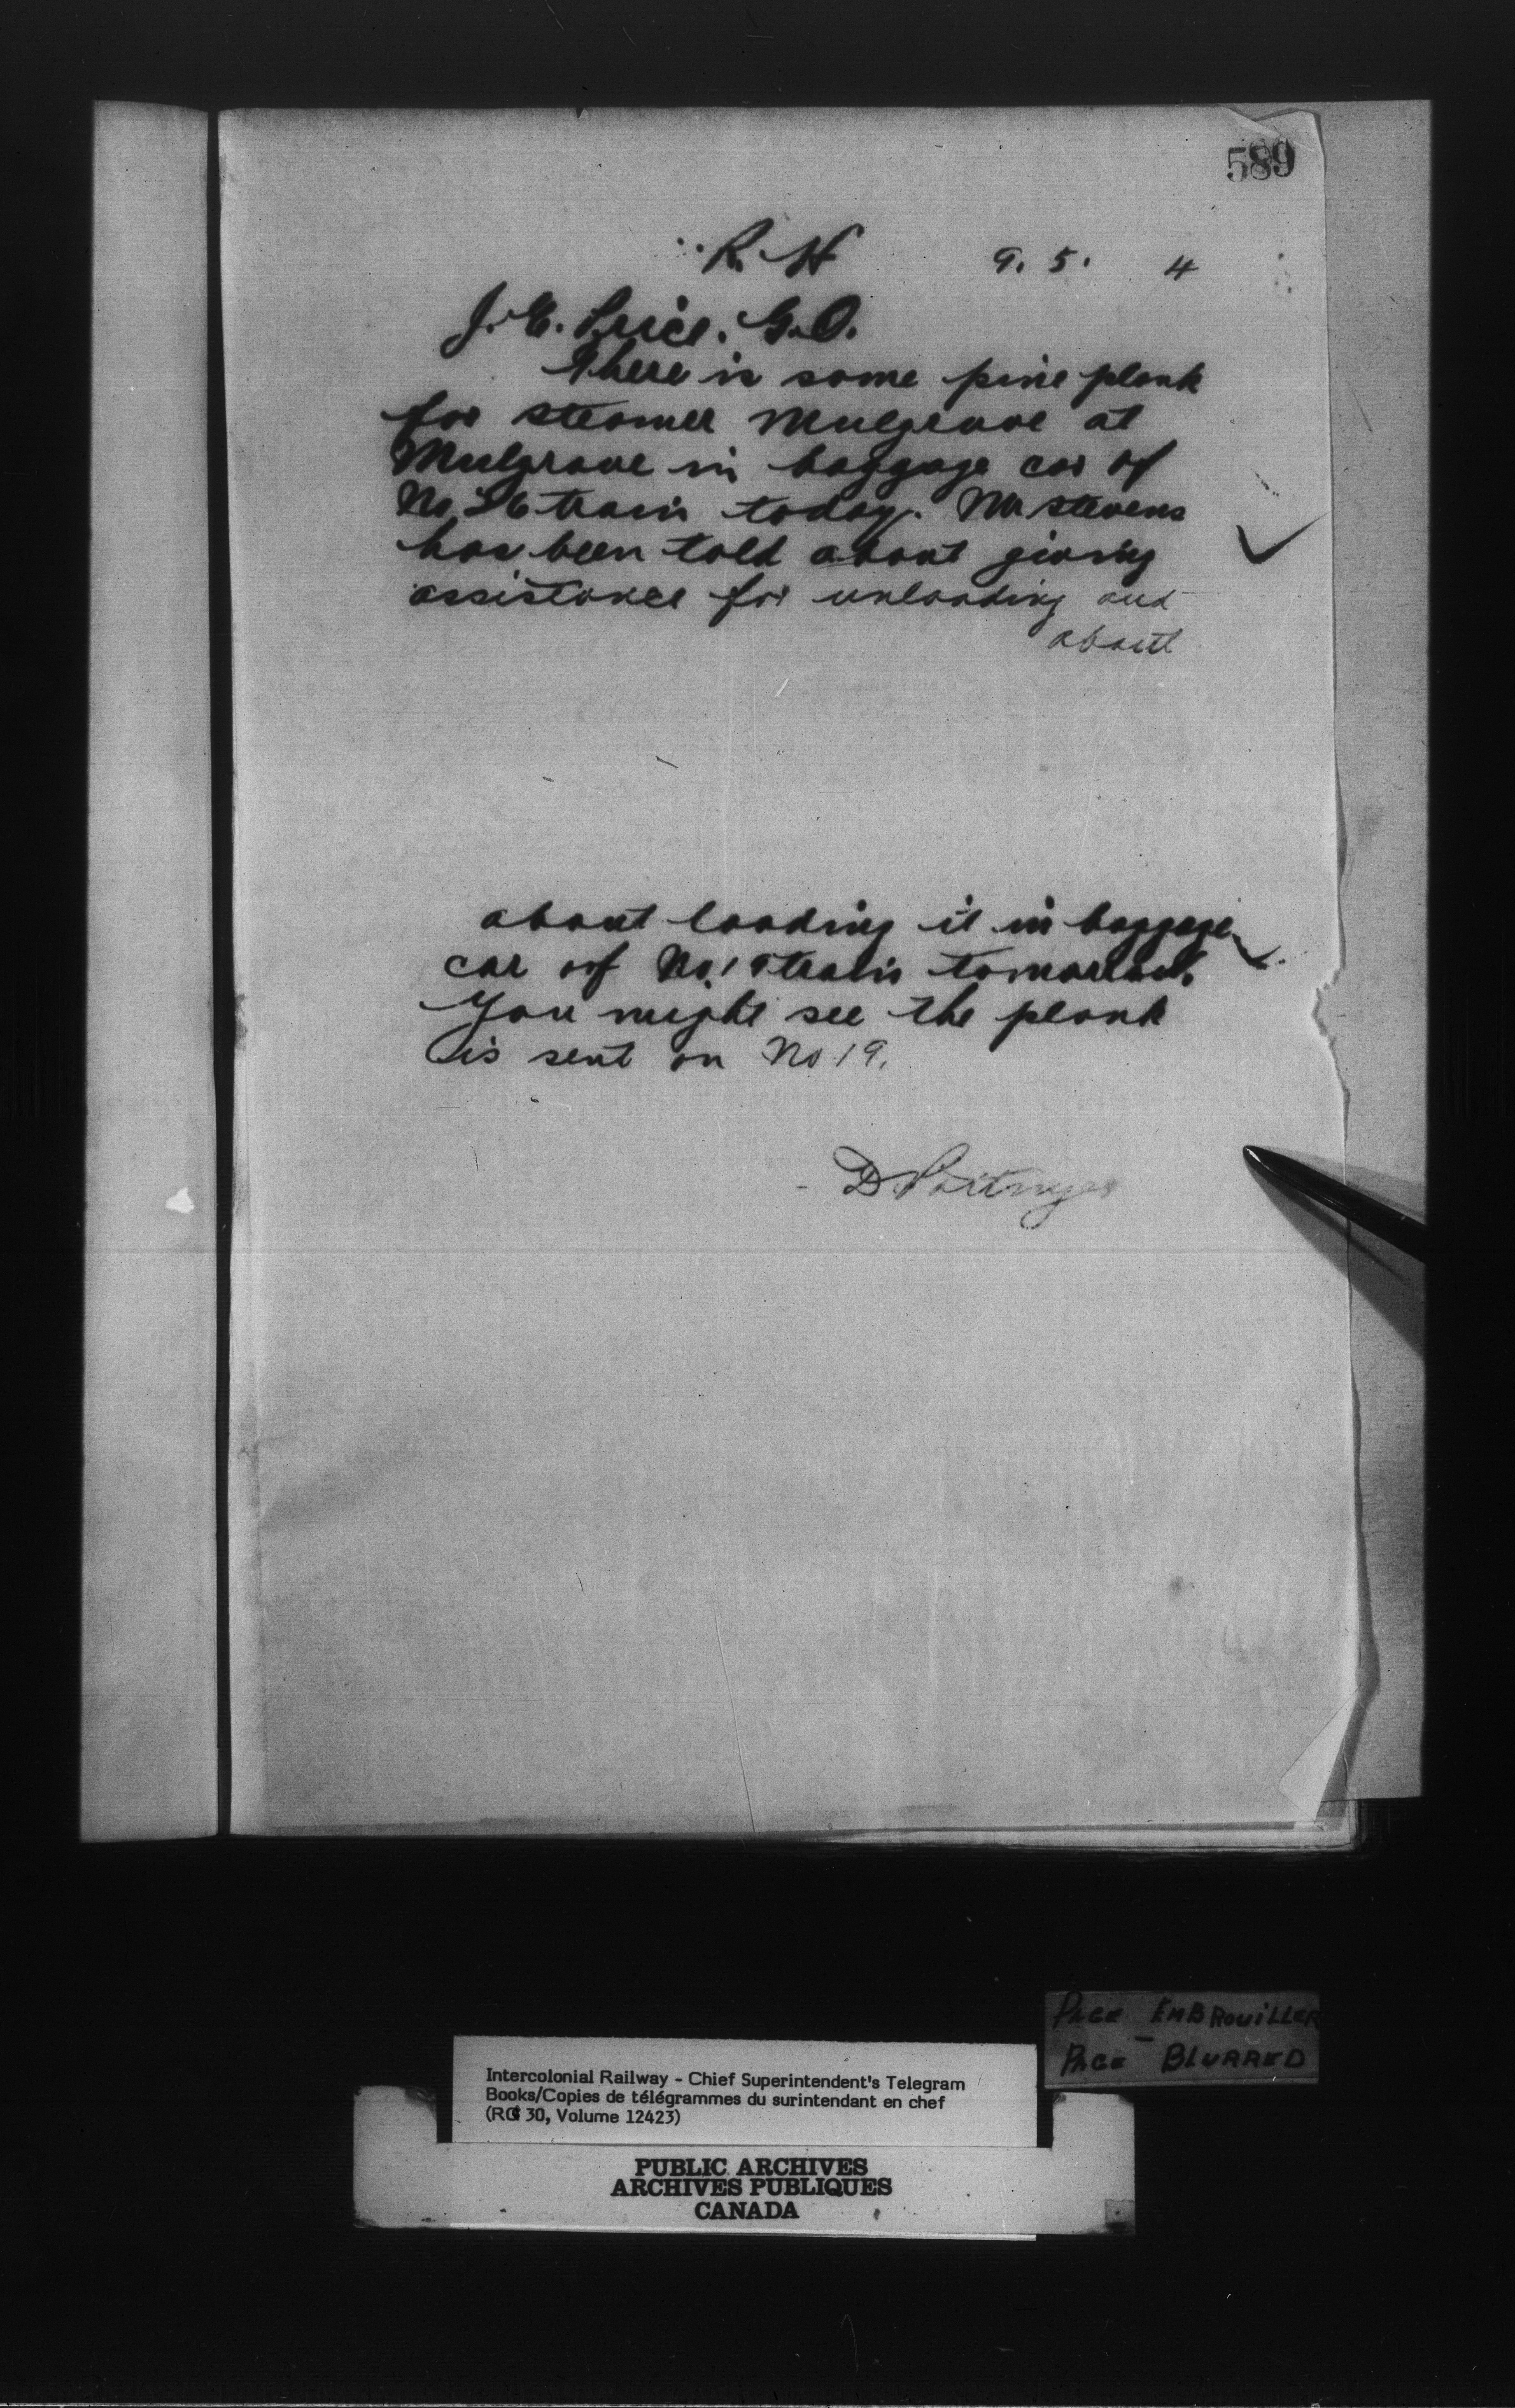 589
R. H 9. 5. 4
J. E. Price. G.O.
There is some pine plank
for steamer Mulgrave at
Mulgrave in baggage car of
No. 26 train today. Mr Stevens
has been told about giving
assistance for unloading and
about
about loading it in baggage
car of No. 19 train tomorrow.
You might see the plank
is sent on No 19.
D Pottinger
PAGE EMBROUILLER
PAGE BLURRED
Intercolonial Railway - Chief Superintendent's Telegram
Books/Copies de télégrammes du surintendant en chef
(RG 30, Volume 12423)
PUBLIC ARCHIVES
ARCHIVES PUBLIQUES
CANADA